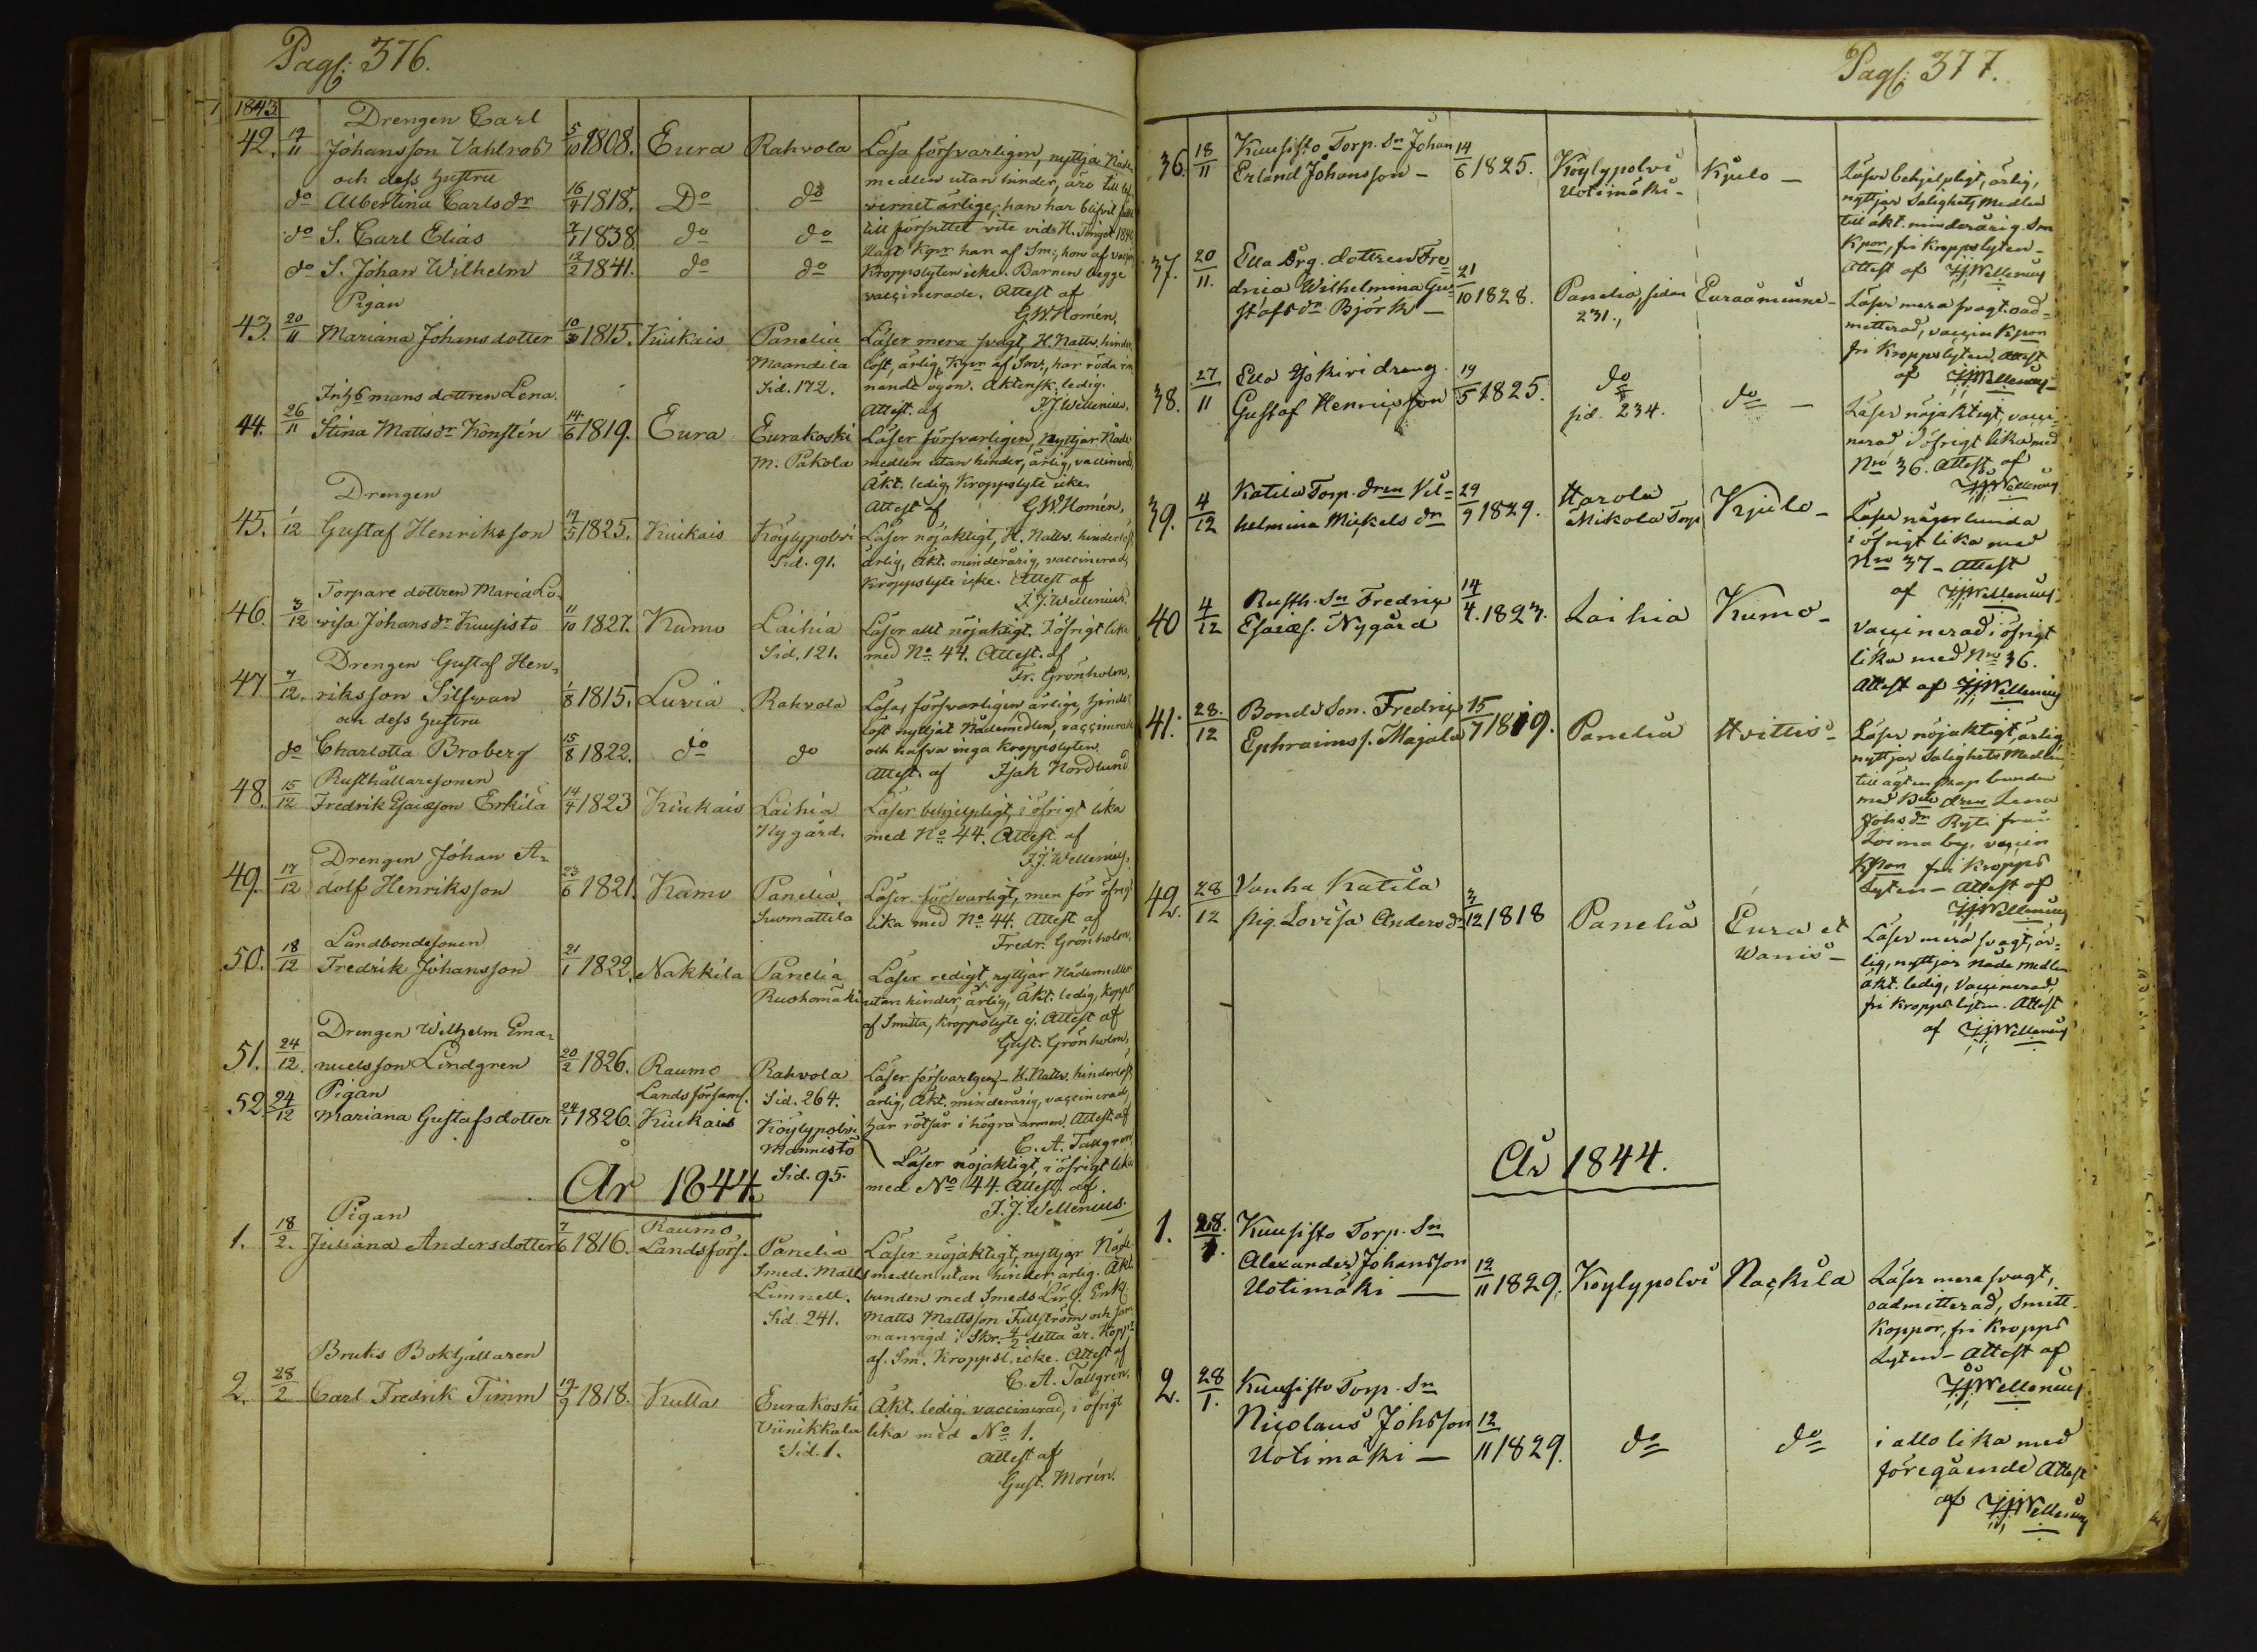 Pag: 376.
1843.
Drengen Carl
42. 17/11 Johansson Vahlros 5/10 1808. Eura Rahvola Läsa försvarligen, nyttja Nåde
och dess hustru medlen utan hinder, äro till lef
do Albertina Carlsdr 16/4 1818. Do do vernet ärlige; han har blifvit
do S. Carl Elias 7/1 1838. do do till försuttet vite vid H. Tinget 184
haft Kpr han af Sm., hon af vacc
do S. Johan Wilhelm 12/2 1841. do do Kroppslyten icke. Barnen begge
vaccinerade. Attest af
Pigan G.W. Homén,
43. 20/11 Mariana Johansdotter 10/3 1815. Kiukais Panelia Läser mera svagt, H. Nattv. hinder
Maandila löst, ärlig, Kpr af Sm., har röda rin
Sid. 172. nande ögon. Äktensk. ledig.
Inhs mans dottren Lena Attest. af J.J. Wellenius,
44. 26/11 Stina Mattsdr Konstén 14/6 1819. Eura Eurakoski Läser försvarligen, Nyttjar Nåde
M. Pakola medlen utan hinder, ärlig, vaccinerad,
Äkt. ledig, Kroppslyte icke.
Drengen Attest af G.W. Homén,
45. 1/12 Gustaf Henriksson 19/5 1825. Kiukais Köylypolvi Läser nöjaktigt, H. Nattv. hinderlöst
Sid. 91. ärlig, Äkt. minderårig, vaccinerad,
Kroppslyte icke. Attest af
Torpare dottren Maria Lo- J.J. Wellenius.
46. 3/12 visa Johansdr Kuusisto 11/10 1827. Kumo Laihia Läser allt nöjaktigt. I öfrigt lika
Sid. 121. med No 44. Attest. af
Drengen Gustaf Hen- Fr. Grönholm,
47 7/12. riksson Silfwan 1/8 1815. Luvia Rahvola Läsa, försvarligen ärlige, hinder
och dess hustru löst nyttjat Nådemedlen, vaccinerade
do Charlotta Broberg 15/8 1822. do do och hafva inga Kroppslyten.
Attest. af Isak Nordlund
Rusthållaresonen
48. 15/12 Fredrik Esaiæsson Erkila 14/4 1823 Kiukais Laihia Läser behjelpligt, i öfrigt lika
Nygård. med No 44. Attest. af
Drengen Johan A- J.J. Wellenius,
49. 17/12 dolf Henriksson 23/6 1821. Kumo Panelia Läser försvarligt, men för öfrigt
Suomattila lika med No 44. Attest af
Landbondesonen Fredr. Grönholm,
50. 18/12 Fredrik Johansson 21/1 1822. Nakkila Panelia Läser redigt, nyttjar Nådemedlen
Ruohomäki utan hinder, ärlig, Äkt. ledig, Kopps
af Smitta, Kroppslyte ej. Attest af
Drengen Wilhelm Ema- Gust. Grönholm,
51. 24/12. nuelsson Lindgren 20/2 1826. Raumo Rahvola Läser försvarligen - H. Nattv. hinderlöst,
Landsförsaml. Sid. 264. ärlig, Äkt. minderårig, vaccinerad,
Pigan har rötsår i högra armen. Attest. af
52. 24/12 Mariana Gustafsdotter 24/1 1826. Kiukais Köylypolvi C. A. Tallgren,
Mannistö Läser nöjaktigt, i öfrigt lika
År 1844. Sid. 95. med No 44. Attest af
J.J. Wellenius.
Pigan
1. 18/2. Juliana Andersdotter 7/6 1816. Raumo Landsförs. Panelia Läser nöjaktigt, nyttjar Nåde
Smed. Matts medlen utan hinder, ärlig. Äkt.
Limnell. bunden med Smeds Lärl. Enkl.
Sid. 241. Matts Mattsson Fullström och sam
manvigd i Skr. 4/2 detta år. Kopp
Bruks Bokhållaren af. Sm. Kroppsl. icke. Attest af
C. A. Tallgren.
2. 28/2 Carl Fredrik Timm 19/9 1818. Kulla Eurakoski Äkt. ledig. vaccinerad, i öfrigt
Viinikkala lika med No 1.
Sid. 1. Attest af
Gust. Morén.
Pag: 377.
36. 18/11 Kuusisto Torp. Sn Johan 14/6 1825. Köylypolvi Kjulo - Läser behjelpligt, ärlig,
Erland Johansson - Uotimäki - nyttjar Salighets Medlen
till äkt. minderårig. Sm
Kpor, fri Kroppslyten -
Attest af J.J. Wellenius
37. 20/11. Ella Drg. dottren Fre- 21/10 1828. Panelia, sidan Euraåminne - Läser mera svagt. oad-
drica Wilhelmina Gu- 231., mitterad, vaccin Kpon
stafsdr Björk - fri Kroppslyten. Attest
af J.J. Wellenius -
38. 27/11 Ella Yjokivi dreng. 19/5 1825. do do - Läser nöjaktigt, vacci-
Gustaf Henricsson sid. 234. nerad, i öfrigt lika med
Nro 36. Attest af
J.J. Wellenius
39. 4/12 Katila Torp. dren Vil- 29/9 1829. Harola Kjulo - Läser någorlunda
helmina Mickelsdr Mikola Torp i öfrigt lika med
Nro 37 - Attest
af J.J. Wellenius.
40 4/12 Rusth. Sn Fredric 14/4. 1823. Laihia Kumo - Vaccinerad, i öfrigt
Esaiæs. Nygård lika med Nro 36.
Attest af J.J. Wellenius
41. 28./12 Bonde Son. Fredric 15/7 1819. Panelia Hvittis - Läser nöjaktigt, ärlig,
Ephraims s. Majala nyttjar Salighets Medlen,
till ägtenskap bunden
med Bde dren Lena
Johsdr Ryti från
Loima by, vaccin
Kpon fri Kropps
Lyten - Attest af
J.J. Wellenius
42. 28/12 Vanha Katila 3/12 1818 Panelia Eura et Läser mera svagt, är-
pig. Lovisa Andersdr Wanis - lig, nyttjar Nåde Medlen
äkt. ledig, Vaccinerad,
fri Kropps lyten. Attest
af J.J. Wellenius
År 1844.
1. 28./1. Kuusisto Torp. Sn
Alexander Johansson 12/11 1829. Köylypolvi Nackila Läser mera svagt,
Uotimäki - oadmitterad, Smitt.
Koppor, fri Kropps
Lyten - Attest af
J.J. Wellenius
2. 28/1. Kuusisto Torp. Sn
Nicolaus Johsson 12/11 1829. do do i allo lika med
Uotimäki - föregående Attest
af J.J. Wellenius